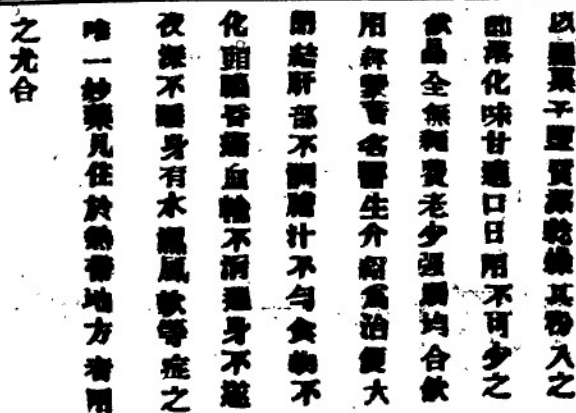 以羅菓子鹽質壓乾燥其粉入之
即落化味甘適口日用不可少之
飲品全無耗費老少强弱均合飲
用經衆著名醫生介紹爲治便大
閉結肝部不調膽汁不勻食物不
化頭腦昏痛血輪不清通身不遂
夜深不睡身有水濕風軟等症之
唯一妙藥凡住於熱帶地方者用
之尤合